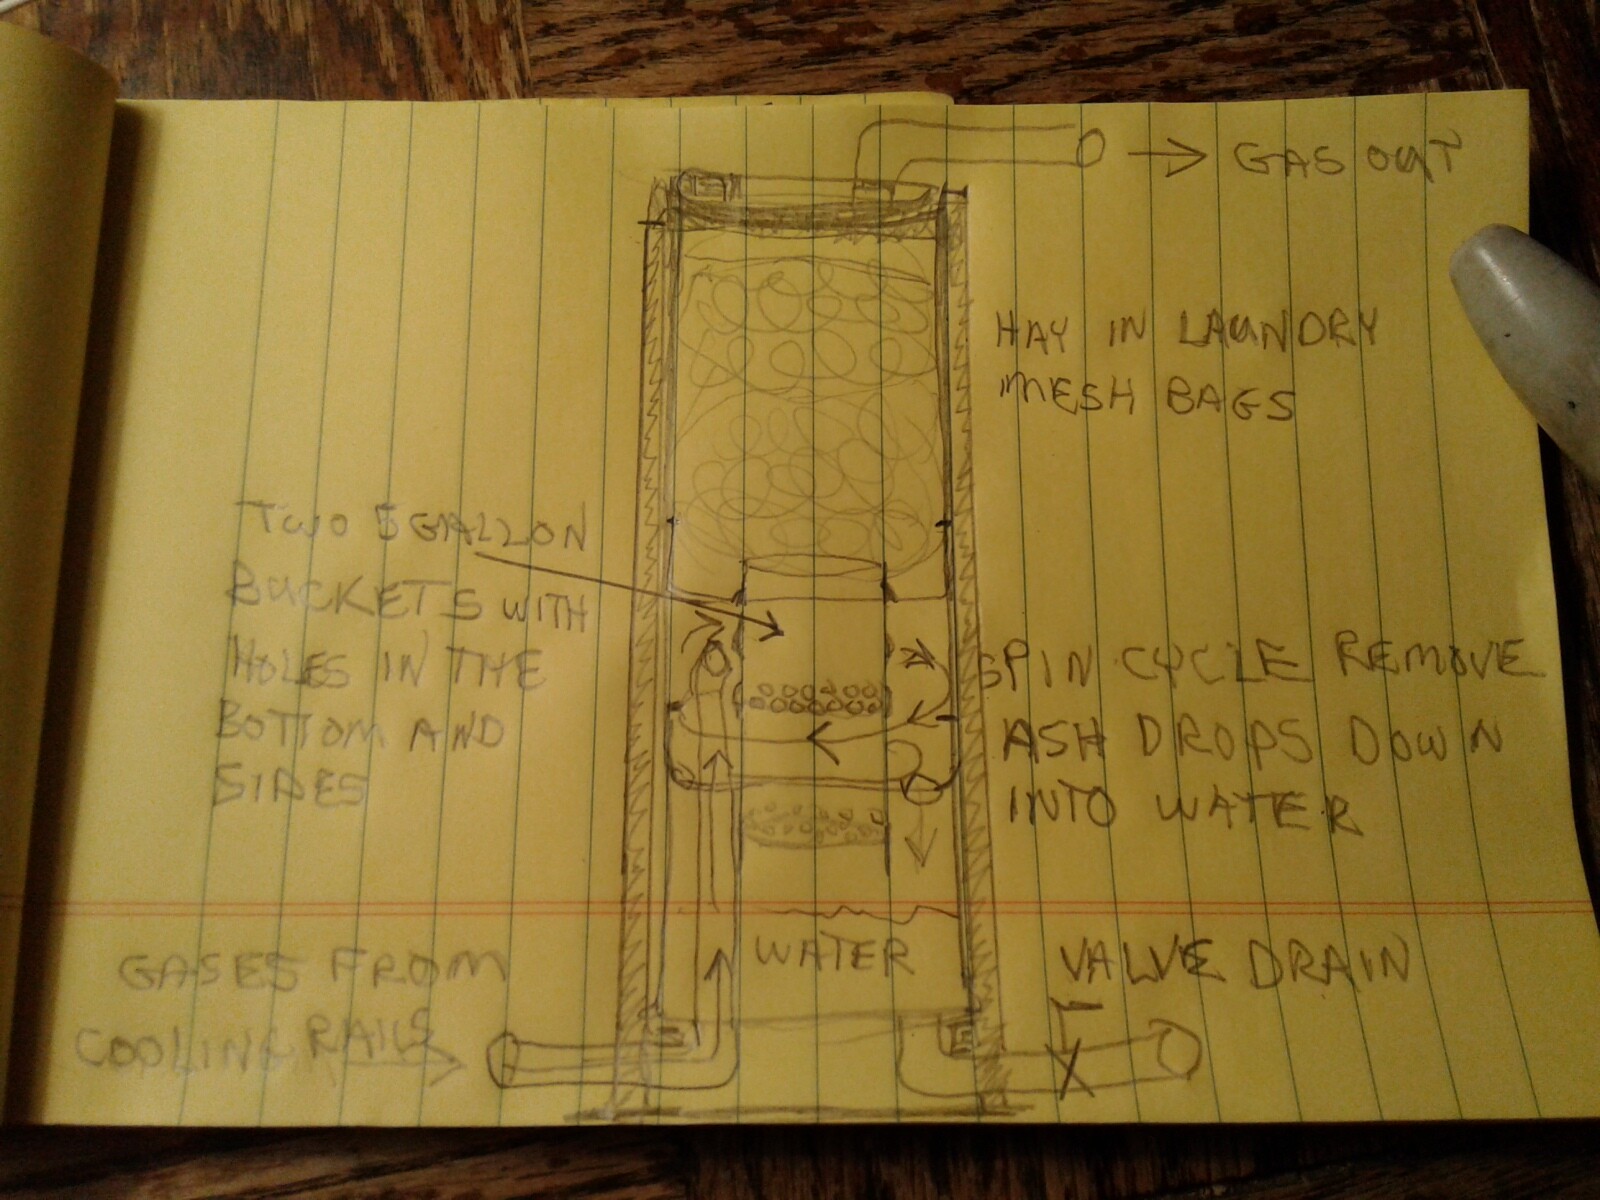 GAS OUT
HAY IN LAUNDRY
MESH BAGS
TWO 5 GALLON
BUCKETS WITH
HOLES IN THE
BOTTOM AND
SIDES
SPIN CYCLE REMOVE
ASH DROPS DOWN
INTO WATER
WATER
GASES FROM
COOLING RAILS
VALVE DRAIN